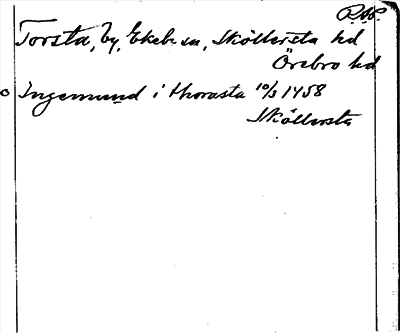 R.A.P.
Torsta, by, Ekeby sn, Sköllersta hd
Örebro hd
Ingemund i thorasta 10/3 1458
Sköllersta